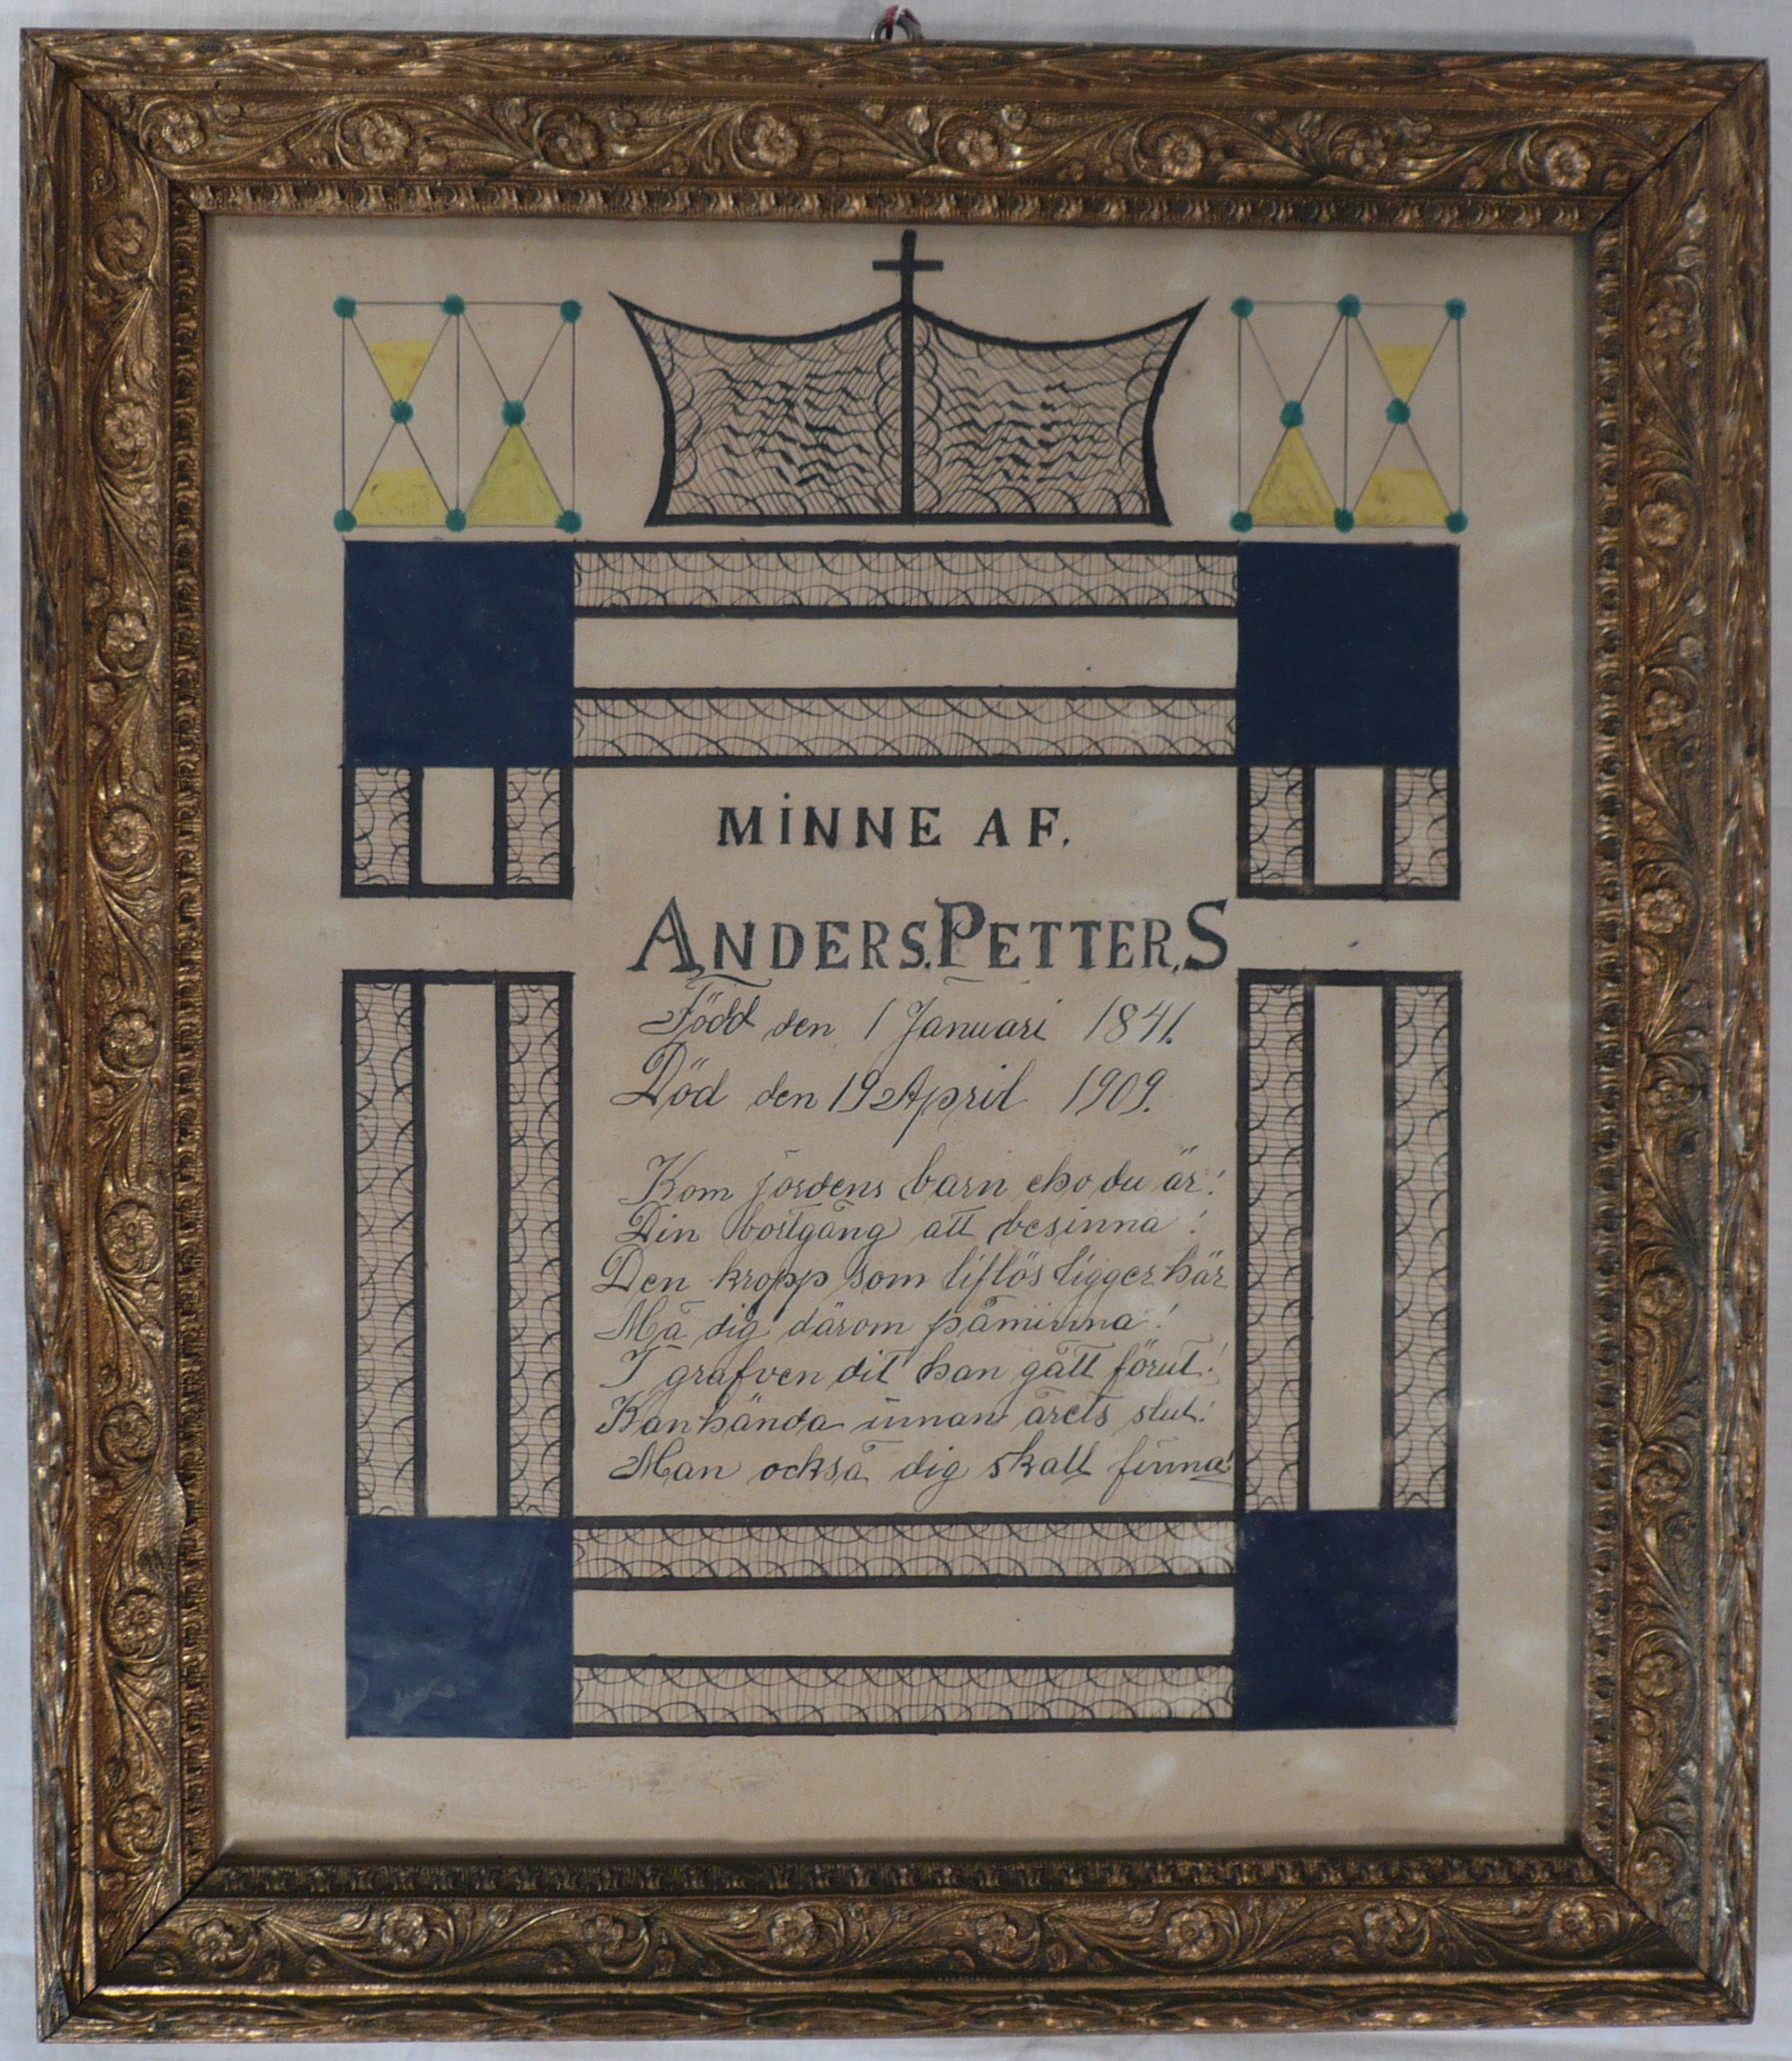 MiNNE AF.
ANDERS.PETTER.S
Född den 1 Januari 1841.
Död den 19 April 1909.
Kom jordens barn eho du är!
Din bortgång att besinna!
Den kropp som liflös ligger här
Må dig därom påminna!
I grafven dit han gått förut!
Kanhända innan årets slut!
Man också dig skall finna!